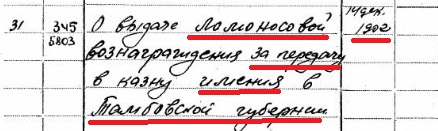 31 345 О выдаче Ломоносовой 14 дек.
5803 вознаграждения за передачу 1902
в казну имения в
Тамбовской губернии